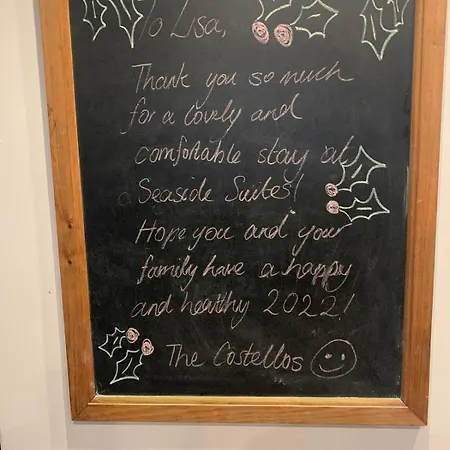 To Lisa,
Thank you so much
for a lovely and
comfortable stay at
Seaside Suites!
Hope you and your
family have a happy
and healthy 2022!
The Costellos